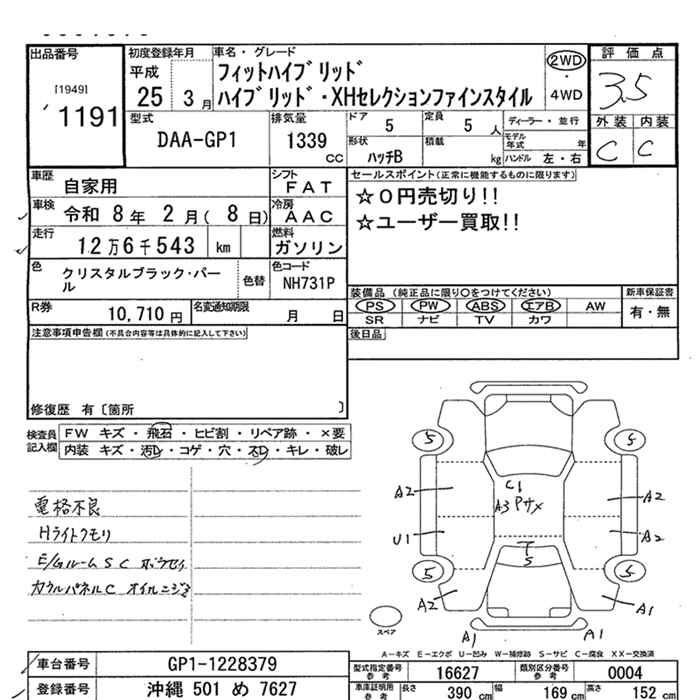 出品番号
[1949]
1191
初度登録年月
平成
25 3月
車名・グレード
フィットハイブリッド
ハイブリッド・XHセレクションファインスタイル
2WD
・
4WD
評価点
3.5
外装 内装
C C
型式
DAA-GP1
排気量
1339
CC
ドア 5
定員 5人
ディーラー・並行
形状 ハッチB
積載 kg
モデル年式 年
ハンドル 左・右
車歴 自家用
シフト FAT
車検 令和 8年 2月( 8日)
冷房 AAC
走行 12万6千543 km
燃料 ガソリン
色 クリスタルブラック・パール
色替
色コード NH731P
R券 10,710円
名変通知期限 月 日
セールスポイント(正常に機能するものに限ります)
☆0円売切り!!
☆ユーザー買取!!
装備品 (純正品に限り〇をつけてください)
新車保証書
PS PW ABS エアB AW
SR ナビ TV カワ
有・無
後日品
注意事項申告欄(不具合内容等は具体的に記入して下さい)
修復歴 有〔箇所 〕
検査員記入欄
FW キズ・飛石・ヒビ割・リペア跡・×要
内装 キズ・汚レ・コゲ・穴・スレ・キレ・破レ
電格不良
Hライトクモリ
E/GルームSC ボウセイ
カウルパネルC オイルニジミ
5 5
C1
A3 Pサメ
A2 A2
U1 A2
S
5 5
A2 A1
A1 A1
スペア
A-キズ E-エクボ U-凹み W-補修跡 S-サビ C-腐食 XX-交換済
車台番号 GP1-1228379
登録番号 沖縄 501 め 7627
型式指定番号 参考 16627
類別区分番号 参考 0004
車庫証明用 参考
長さ 390 cm
幅 169 cm
高さ 152 cm